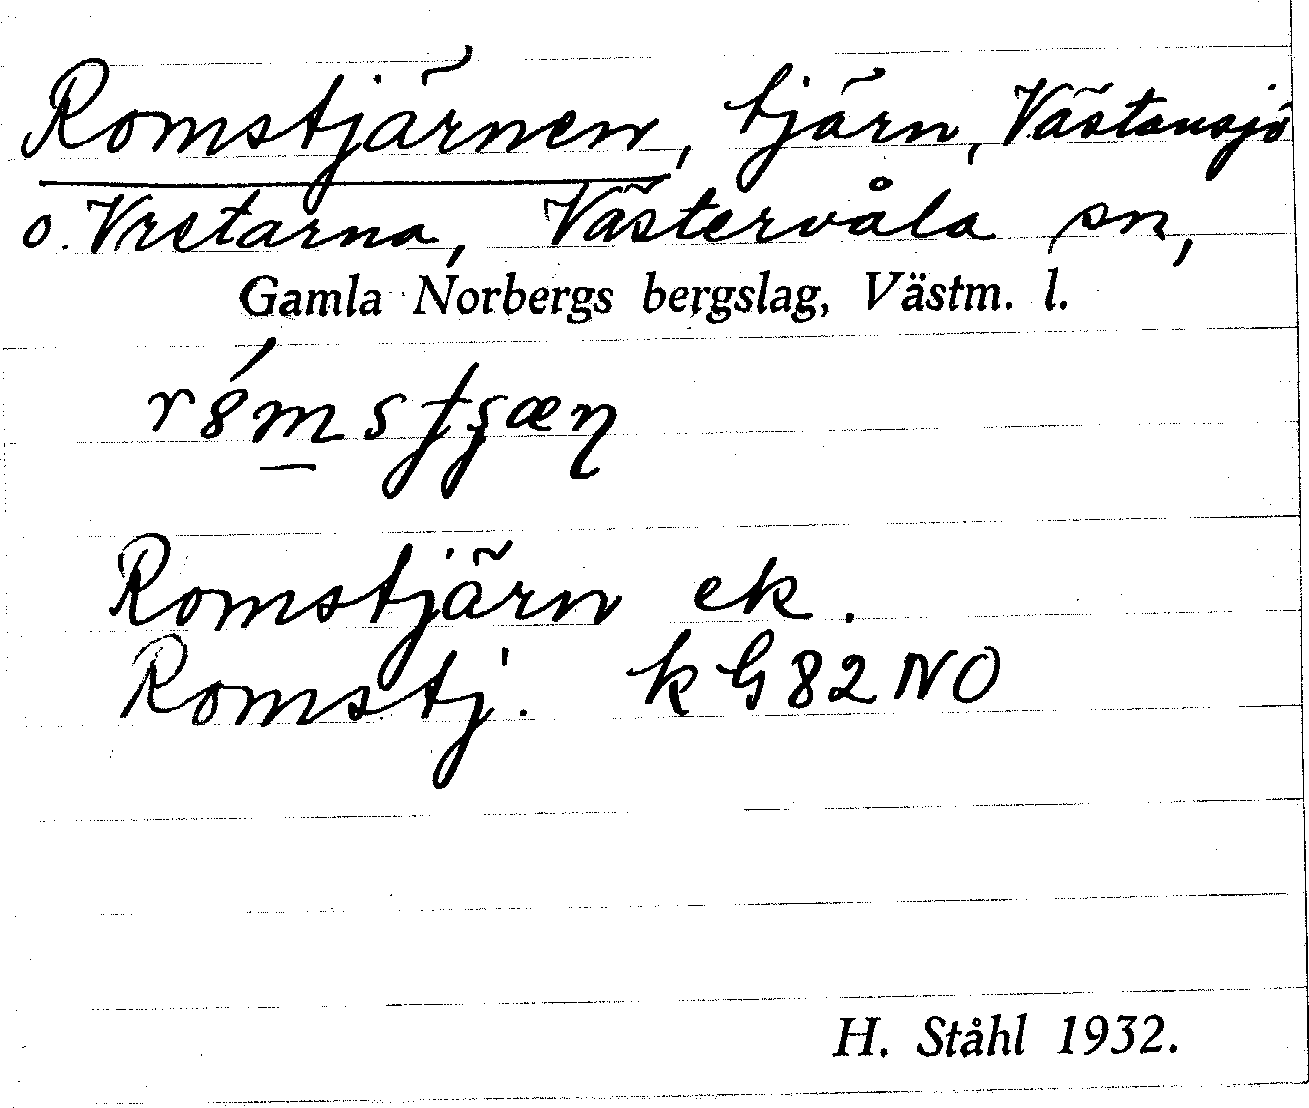 Romstjärnen, tjärn, Västansjö
o. Vretarna, Västervåla sn,
Gamla Norbergs bergslag, Västm. l.
Romstjärn ek.
Romstj. k G 82 NO
H. Ståhl 1932.